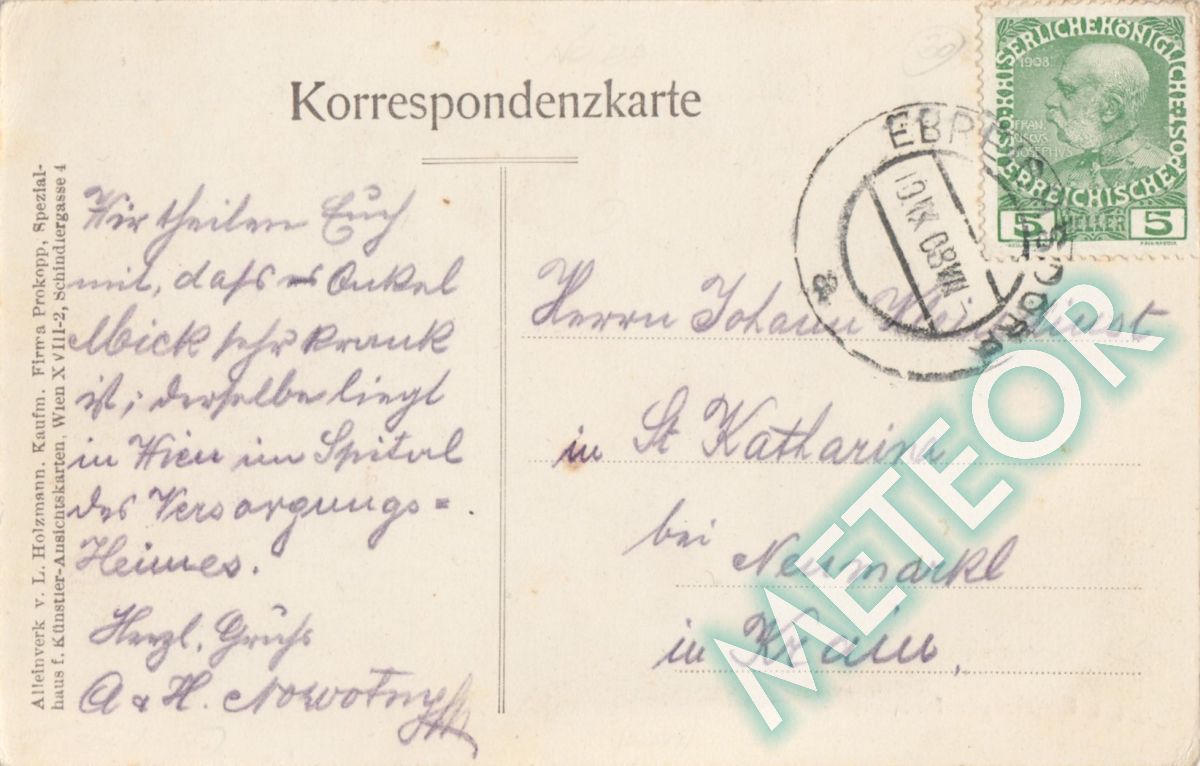 Korrespondenzkarte
Alleinverk v. L. Holzmann, Kaufm. Firma Prokopp, Spezial-
haus f. Künstler-Ansichtskarten, Wien XVIII-2, Schindlergasse 4
Wir theilen Euch
mit, dass Onkel
Mick sehr krank
ist; derselbe liegt
in Wien im Spital
des Versorgungs=
Heimes.
Herzl. Grüße
A & H. Nowotny
KAISERLICHE KÖNIGLICHE
ÖSTERREICHISCHE POST
1908
5 HELLER 5
10 IX 08
a
Herrn Johann
in St Katharina
bei Neumarkl
in Krain,
METEOR